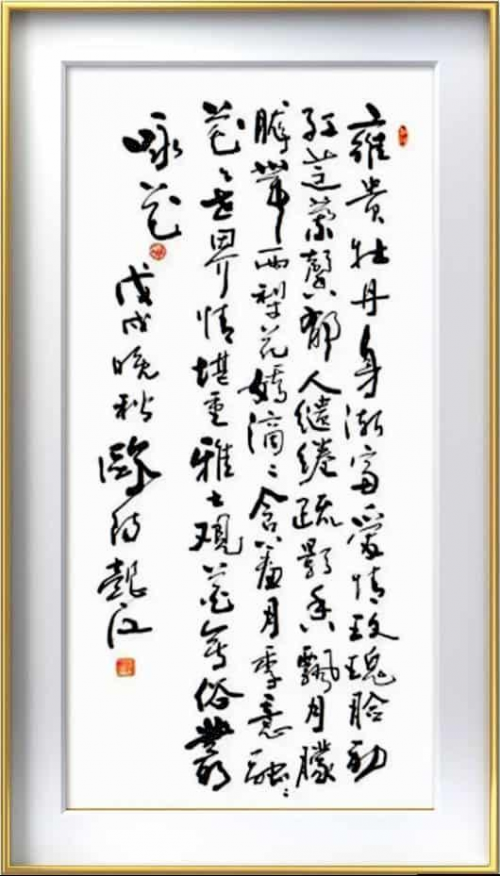 雍贵牡丹身渐富爱情玫瑰脸动
红芝兰馨郁人缱绻疏影香飘月朦
胧带雨梨花娇滴滴含羞月季意融融
花花世界情堪重雅士观花写俗丛
咏花
戊戌晚秋欧阳江